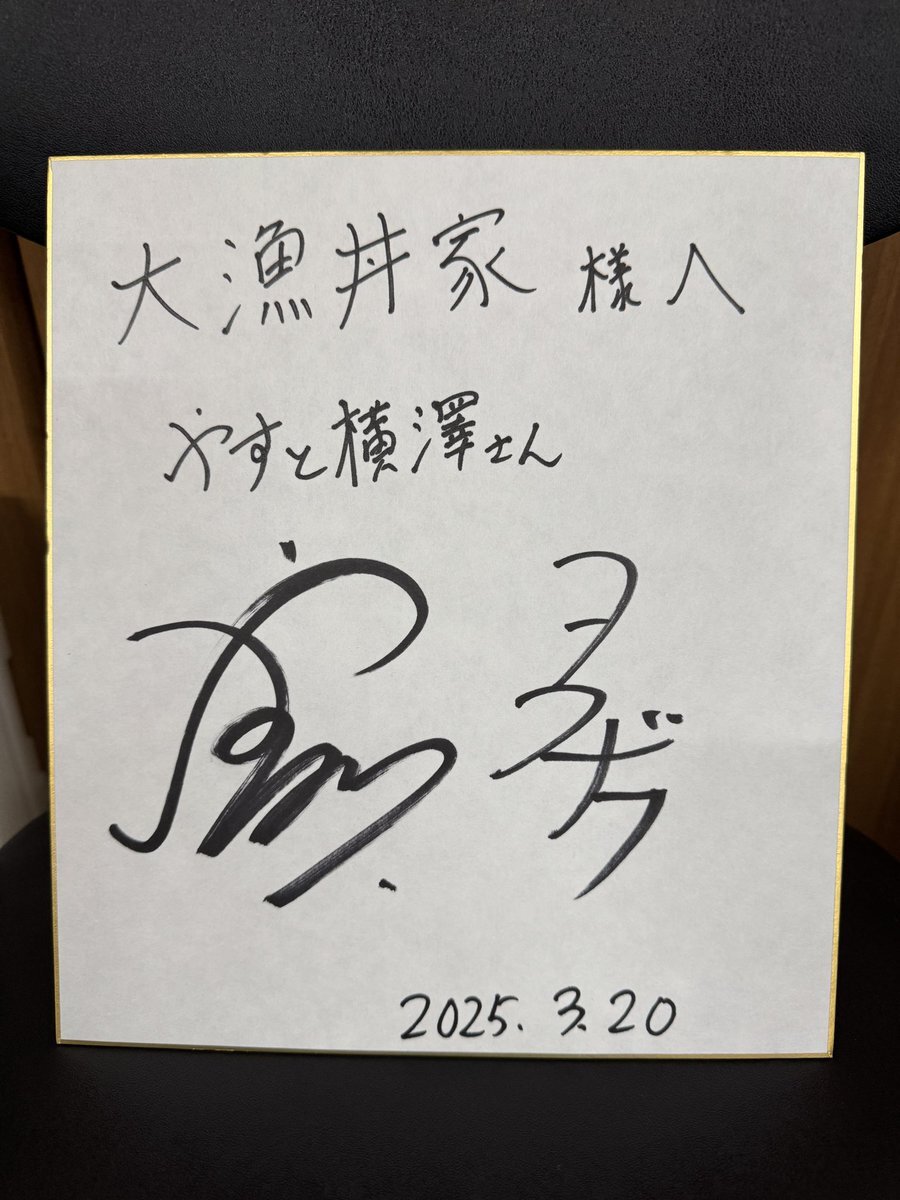 大漁丼家 様へ
やすと横澤さん
2025.3.20